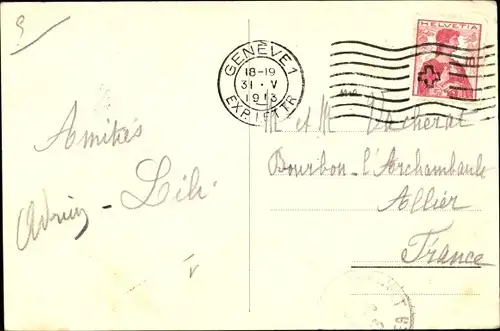 GENÈVE 1
18-19
31 · V
1913
EXP. LETTR
HELVETIA
M et M Vacherat
Bourbon-l'Archambault
Allier
France
Amitiés
Lili